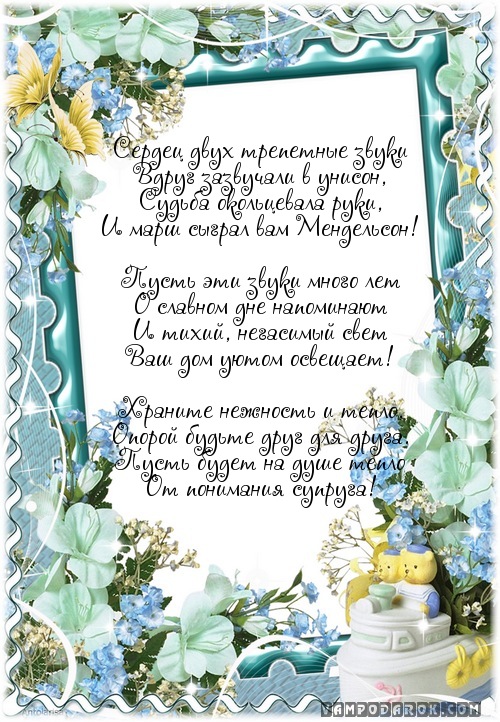 Сердец двух трепетные звуки
Вдруг зазвучали в унисон,
Судьба окольцевала руки,
И марш сыграл вам Мендельсон!
Пусть эти звуки много лет
О славном дне напоминают
И тихий, негасимый свет
Ваш дом уютом освещает!
Храните нежность и тепло,
Опорой будьте друг для друга,
Пусть будет на душе тепло
От понимания супруга!
VAMPODAROK.COM